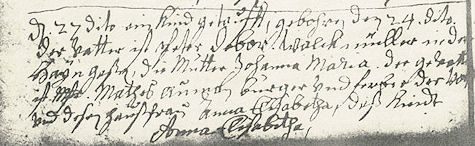 d. 27 dito ein Kind getaufft, gebohren den 24. dito.
der Vatter ist Peter Debor Walckmüller in der
die Mutter Johanna Maria, der
ist Mathes burger und ferber
und desen haußfrau Anna Elisabetha, daß Kindt
Anna Elisabetha,